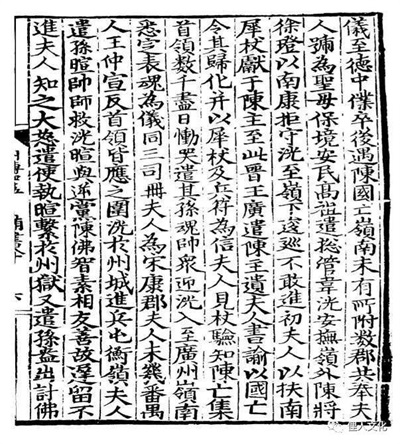 儀至德中僕卒後遇陳國亡嶺南未有所附數郡共奉夫
人號為聖母保境安民高祖遣總管韋洸安撫嶺外陳將
徐璒以南康拒守洸至嶺下逡巡不敢進初夫人以扶南
犀杖獻于陳主至此晉王廣遣陳主遺夫人書諭以國亡
令其歸化并以犀杖及兵符為信夫人見杖驗知陳亡集
首領數千盡日慟哭遣其孫魂帥眾迎洸入至廣州嶺南
悉定表魂為儀同三司冊夫人為宋康郡夫人未幾番禺
人王仲宣反首領皆應之圍洸於州城進兵屯衡嶺夫人
遣孫暄帥師救洸暄與逆黨陳佛智素相友善故遲留不
進夫人知之大怒遣使執暄繫於州獄又遣孫盎出討佛
六
俚人文化